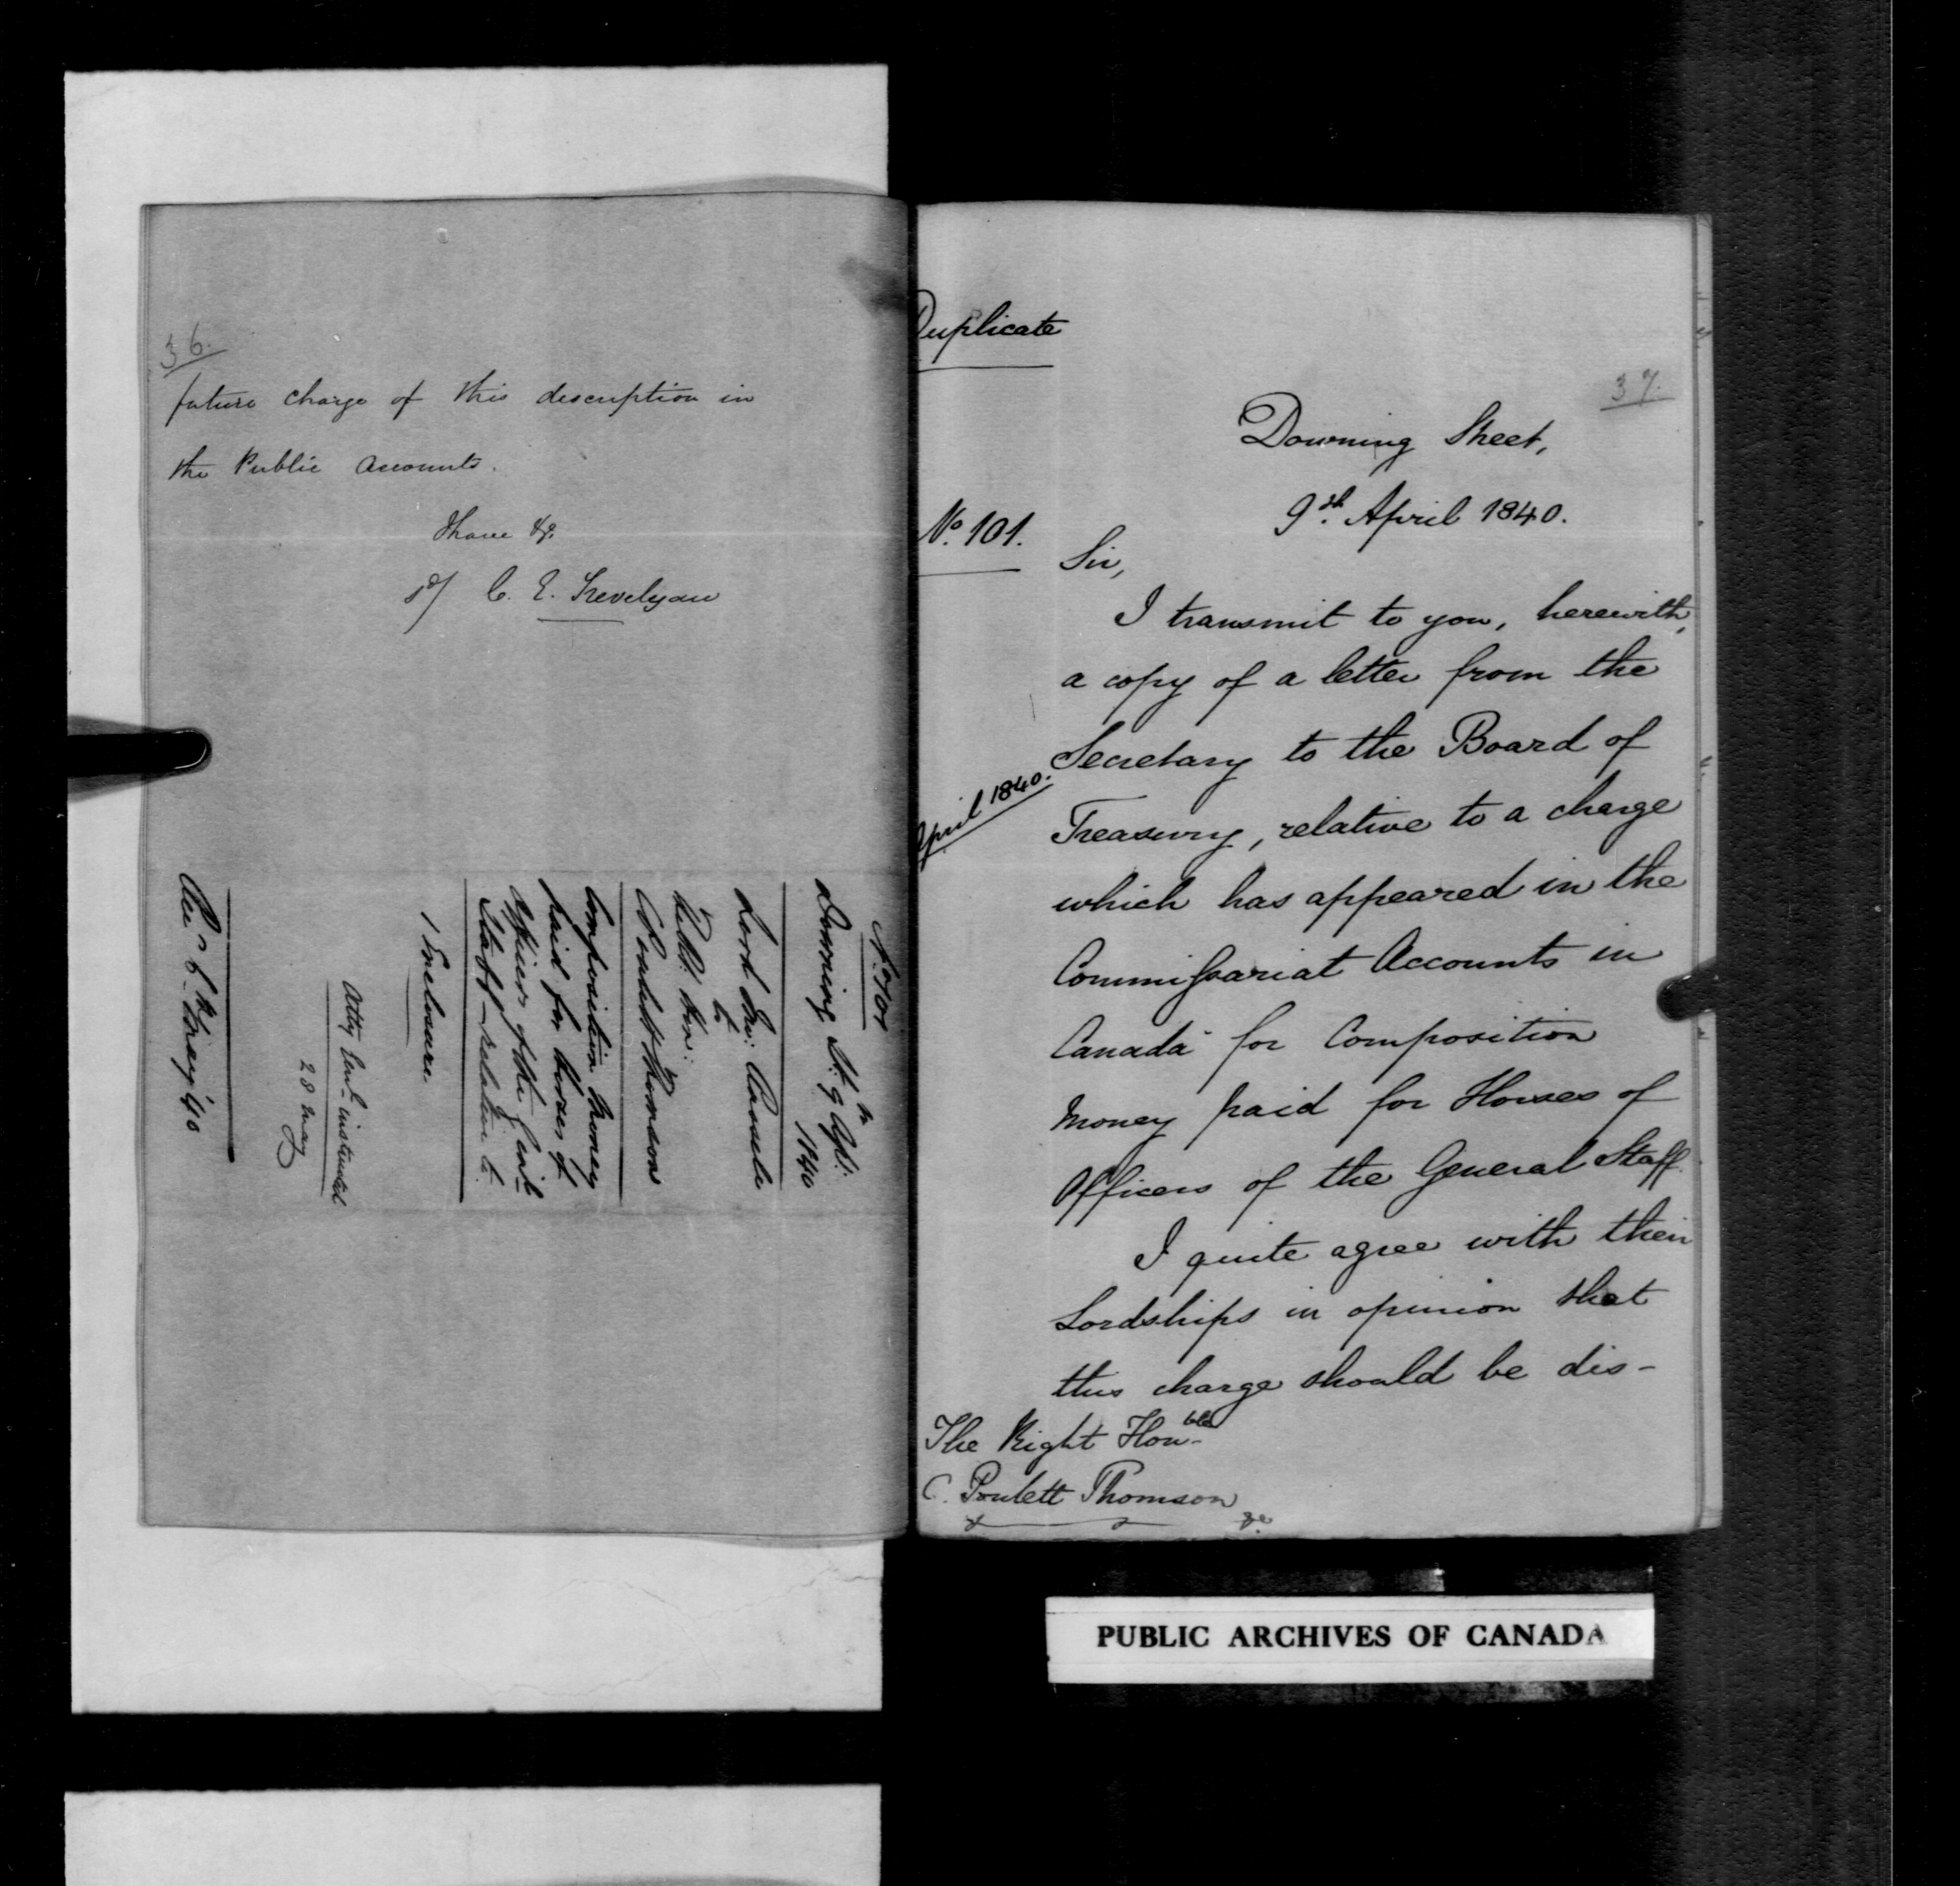 36.
future charge of this description in
the Public Accounts.
I have &c.
sd/ C. E. Trevelyan
No. 101
Downing St. 9th Apl:
1840
Lord Jno: Russell
to
Rt. Hon:
C. Poulett Thomson
Composition money
paid for horses of
Officers of the Genl
Staff - relative to.
1 Enclosure
Atty Genl instructed
28 May
Rec. 6th May '40
Duplicate
37.
Downing Street,
9th. April 1840.
No. 101.
Sir,
I transmit to you, herewith,
a copy of a letter from the
Secretary to the Board of
April 1840.
Treasury, relative to a charge
which has appeared in the
Commissariat Accounts in
Canada for Composition
Money paid for Horses of
Officers of the General Staff.
I quite agree with their
Lordships in opinion that
this charge should be dis-
The Right Honble
C. Poulett Thomson
&c
PUBLIC ARCHIVES OF CANADA